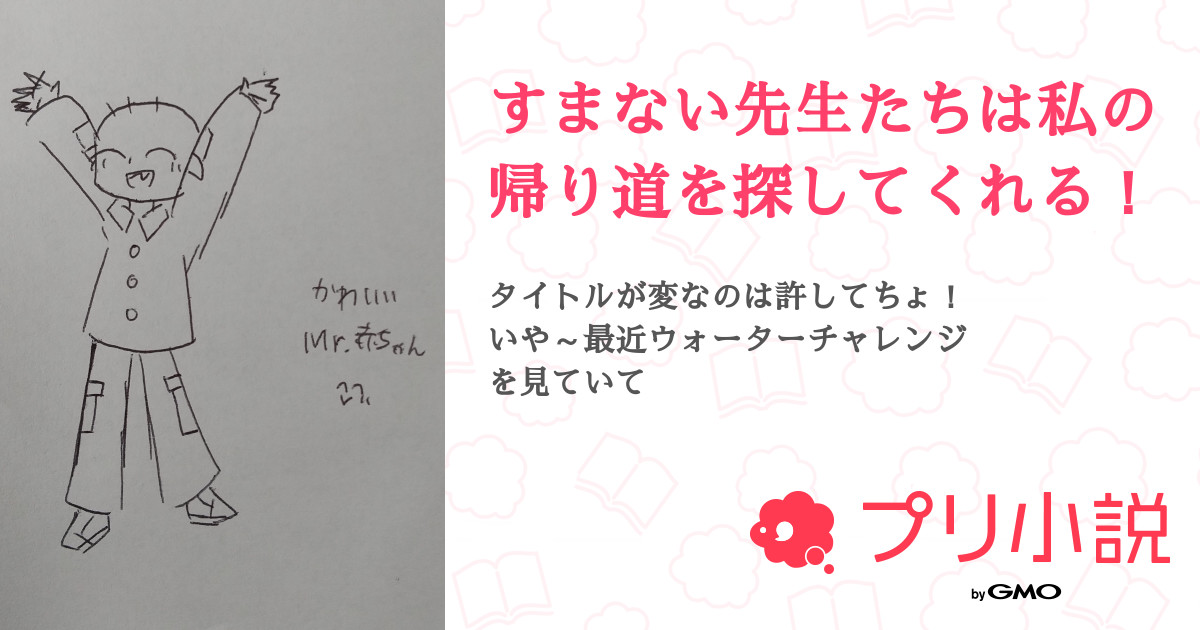 かわいい
Mr.赤ちゃん
すまない先生たちは私の
帰り道を探してくれる！
タイトルが変なのは許してちょ！
いや～最近ウォーターチャレンジ
を見ていて
プリ小説
by GMO